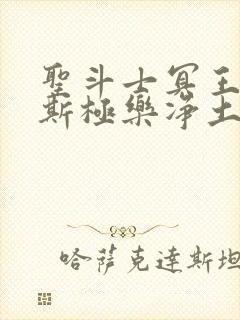 聖斗士冥王
斯極樂淨土
哈薩克達斯坦